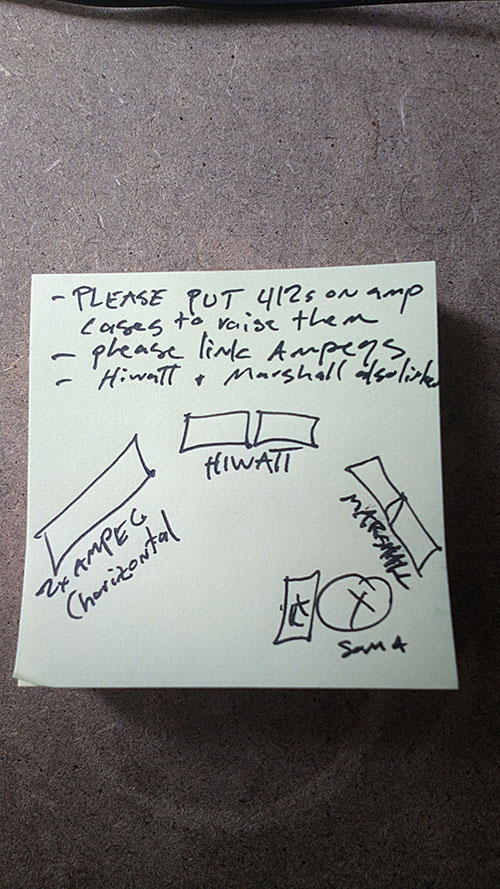 - PLEASE PUT 412s on amp
cases to raise them
- please link Ampegs
- Hiwatt + Marshall also linked
HIWATT
2x AMPEG
(horizontal
MARSHALL
X
Sam A